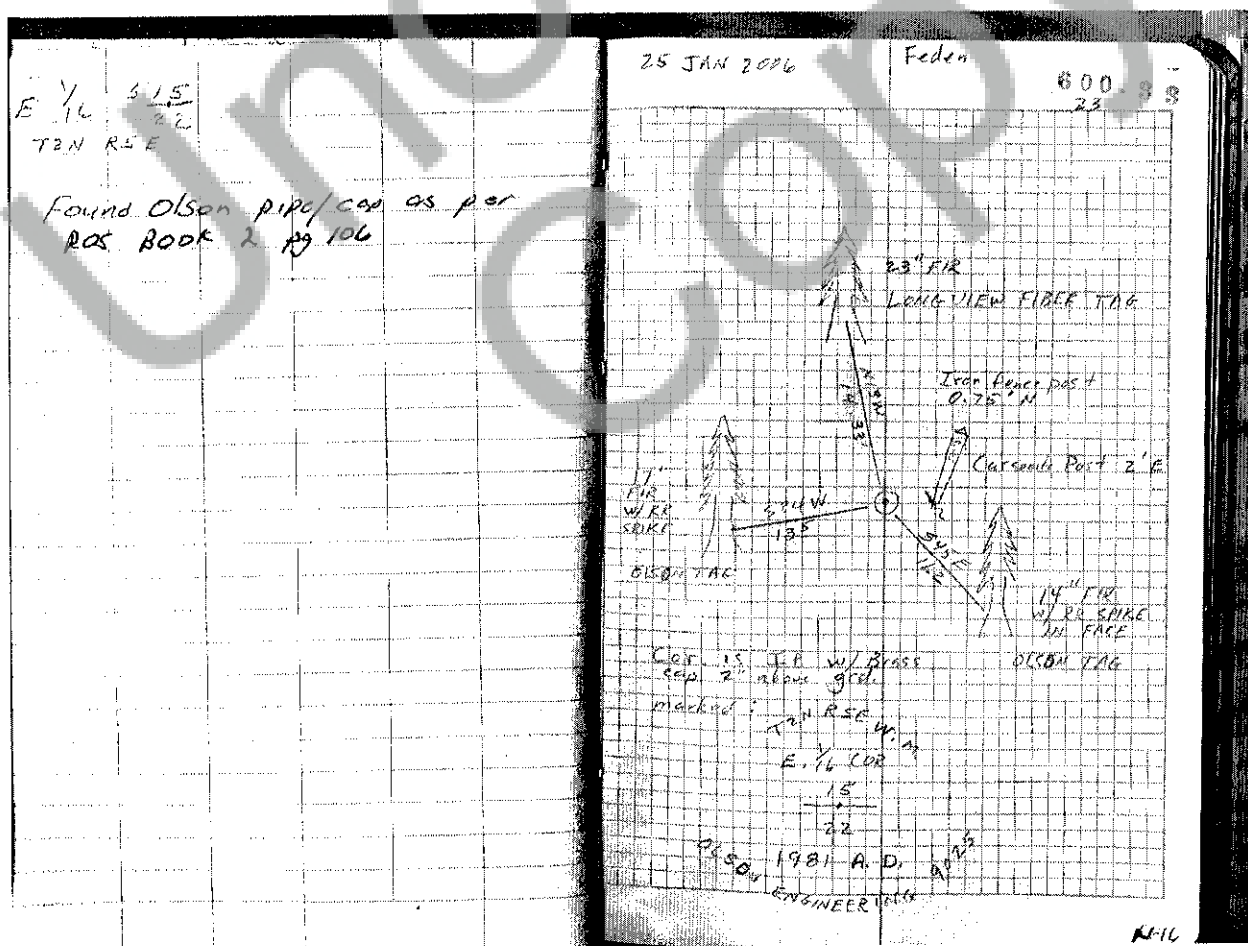 E 1/16 S 15
22
T2N R5E
Found Olson pipe/cap as per
ROS BOOK 2 pg 106
25 JAN 2006 Feden
600
23
23" FIR
LONGVIEW FIBER TAG
Iron fence post
0.75' N
Post 2' E
FIR
W/ RR
SPIKE
OLSON TAG
14" FIR
W/ RR SPIKE
IN FACE
OLSON TAG
Cor. is I.P. w/ Brass
cap 2" above grd.
marked:
T2N R5E W.M.
E. 1/16 COR
15
22
OLSON 1981 A.D.
ENGINEERING
Unof
Copy